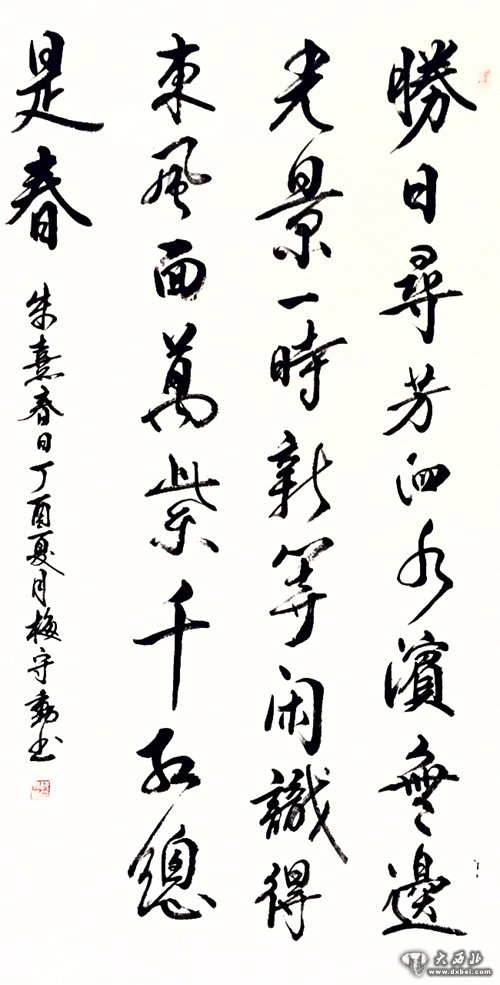 勝日尋芳泗水濱無邊
光景一時新等闲識得
東風面萬紫千红總
是春
朱熹春日丁酉夏月梅守勤书
大西北
www.dxbei.com